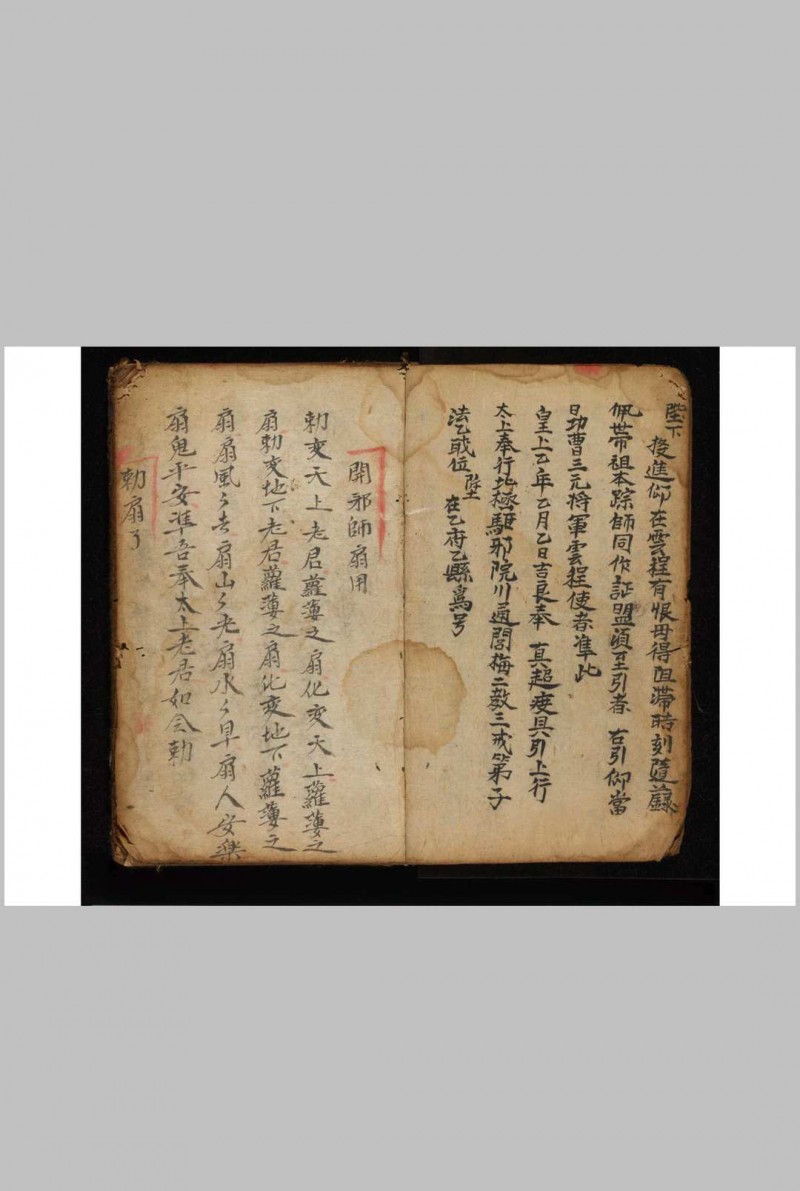 陛下
投進仰在雲程有恨毋得阻滯時刻隨籙
佩帶祖本踪師同作証盟須至引者 右引仰當
日功曹三元将軍雲程使者准此
皇上乙年乙月乙日吉良奉 真超度具引上行
太上奉行北極驅邪院川通閭梅二教三戒第子
法乙戝位陞在乙府乙縣爲号
開邪師扇用
勅变天上老君蘿薄之扇化变天上蘿薄之
扇勅变地下老君蘿薄之扇化变地下蘿薄之
扇扇風々去扇山々光扇水々旱扇人安樂
扇鬼平安準吾奉太上老君如令勅
勅扇了